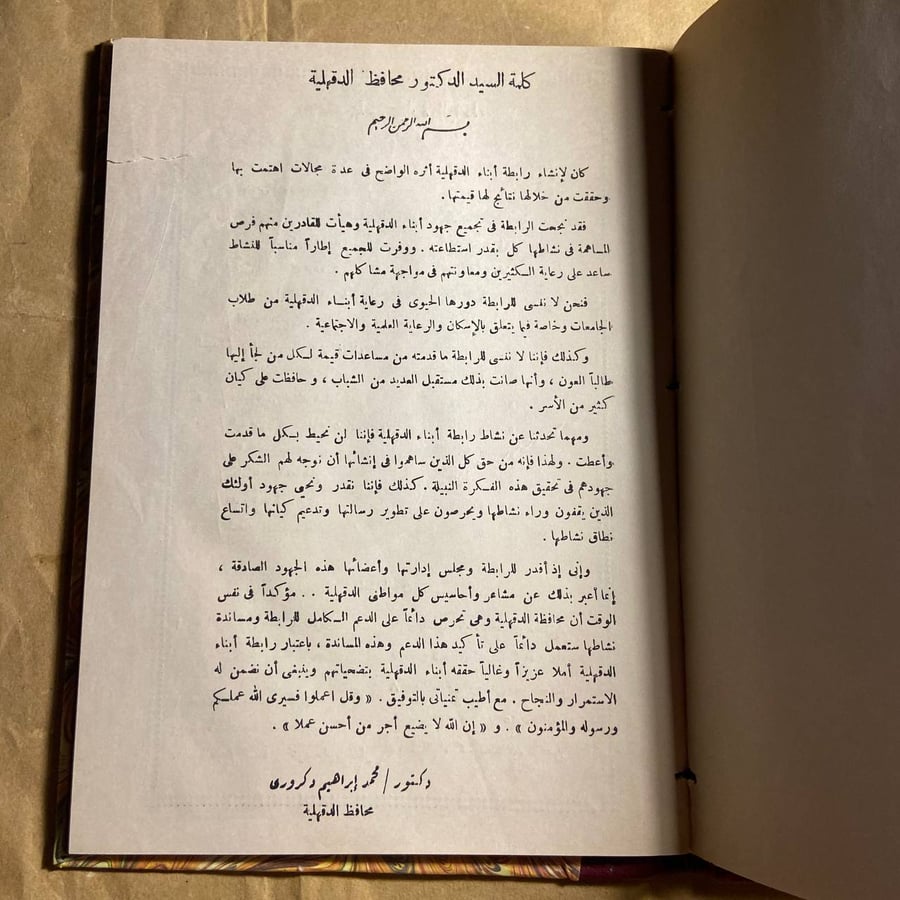 كلمة السيد الدكتور محافظ الدقهلية
بسم الله الرحمن الرحيم
كان لإنشاء رابطة أبناء الدقهلية أثره الواضح فى عدة مجالات اهتمت بها
وحققت من خلالها نتائج لها قيمتها .
فقد نجحت الرابطة فى تجميع جهود أبناء الدقهلية وهيأت للقادرين منهم فرص
المساهمة فى نشاطها كل بقدر استطاعته . ووفرت للجميع إطاراً مناسباً للنشاط
ساعد على رعاية الكثيرين ومعاونتهم فى مواجهة مشاكلهم .
فنحن لا ننسى للرابطة دورها الحيوى فى رعاية أبناء الدقهلية من طلاب
الجامعات وخاصة فيما يتعلق بالإسكان والرعاية العلمية والاجتماعية .
وكذلك فإننا لا ننسى للرابطة ما قدمته من مساعدات قيمة لكل من لجأ إليها
طالباً العون ، وأنها صانت بذلك مستقبل العديد من الشباب ، وحافظت على كيان
كثير من الأسر .
ومهما تحدثنا عن نشاط رابطة أبناء الدقهلية فإننا لن نحيط بكل ما قدمت
وأعطت . ولهذا فإنه من حق كل الذين ساهموا فى إنشائها أن نوجه لهم الشكر على
جهودهم فى تحقيق هذه الفكرة النبيلة . كذلك فإننا نقدر ونحيى جهود أولئك
الذين يقفون وراء نشاطها ويحرصون على تطوير رسالتها وتدعيم كيانها واتساع
نطاق نشاطها .
وإنى إذ أقدر للرابطة ومجلس إدارتها وأعضائها هذه الجهود الصادقة ،
إنما أعبر بذلك عن مشاعر وأحاسيس كل مواطنى الدقهلية . . مؤكداً فى نفس
الوقت أن محافظة الدقهلية وهى تحرص دائماً على الدعم الكامل للرابطة ومساندة
نشاطها ستعمل دائماً على تأكيد هذا الدعم وهذه المساندة ، باعتبار رابطة أبناء
الدقهلية أملا عزيزاً وغالياً حققه أبناء الدقهلية بتضحياتهم وينبغى أن نضمن له
الاستمرار والنجاح . مع أطيب تمنياتى بالتوفيق . « وقل اعملوا فسيرى الله عملكم
ورسوله والمؤمنون » . و « إن الله لا يضيع أجر من أحسن عملا » .
دكتور / محمد إبراهيم دكرورى
محافظ الدقهلية